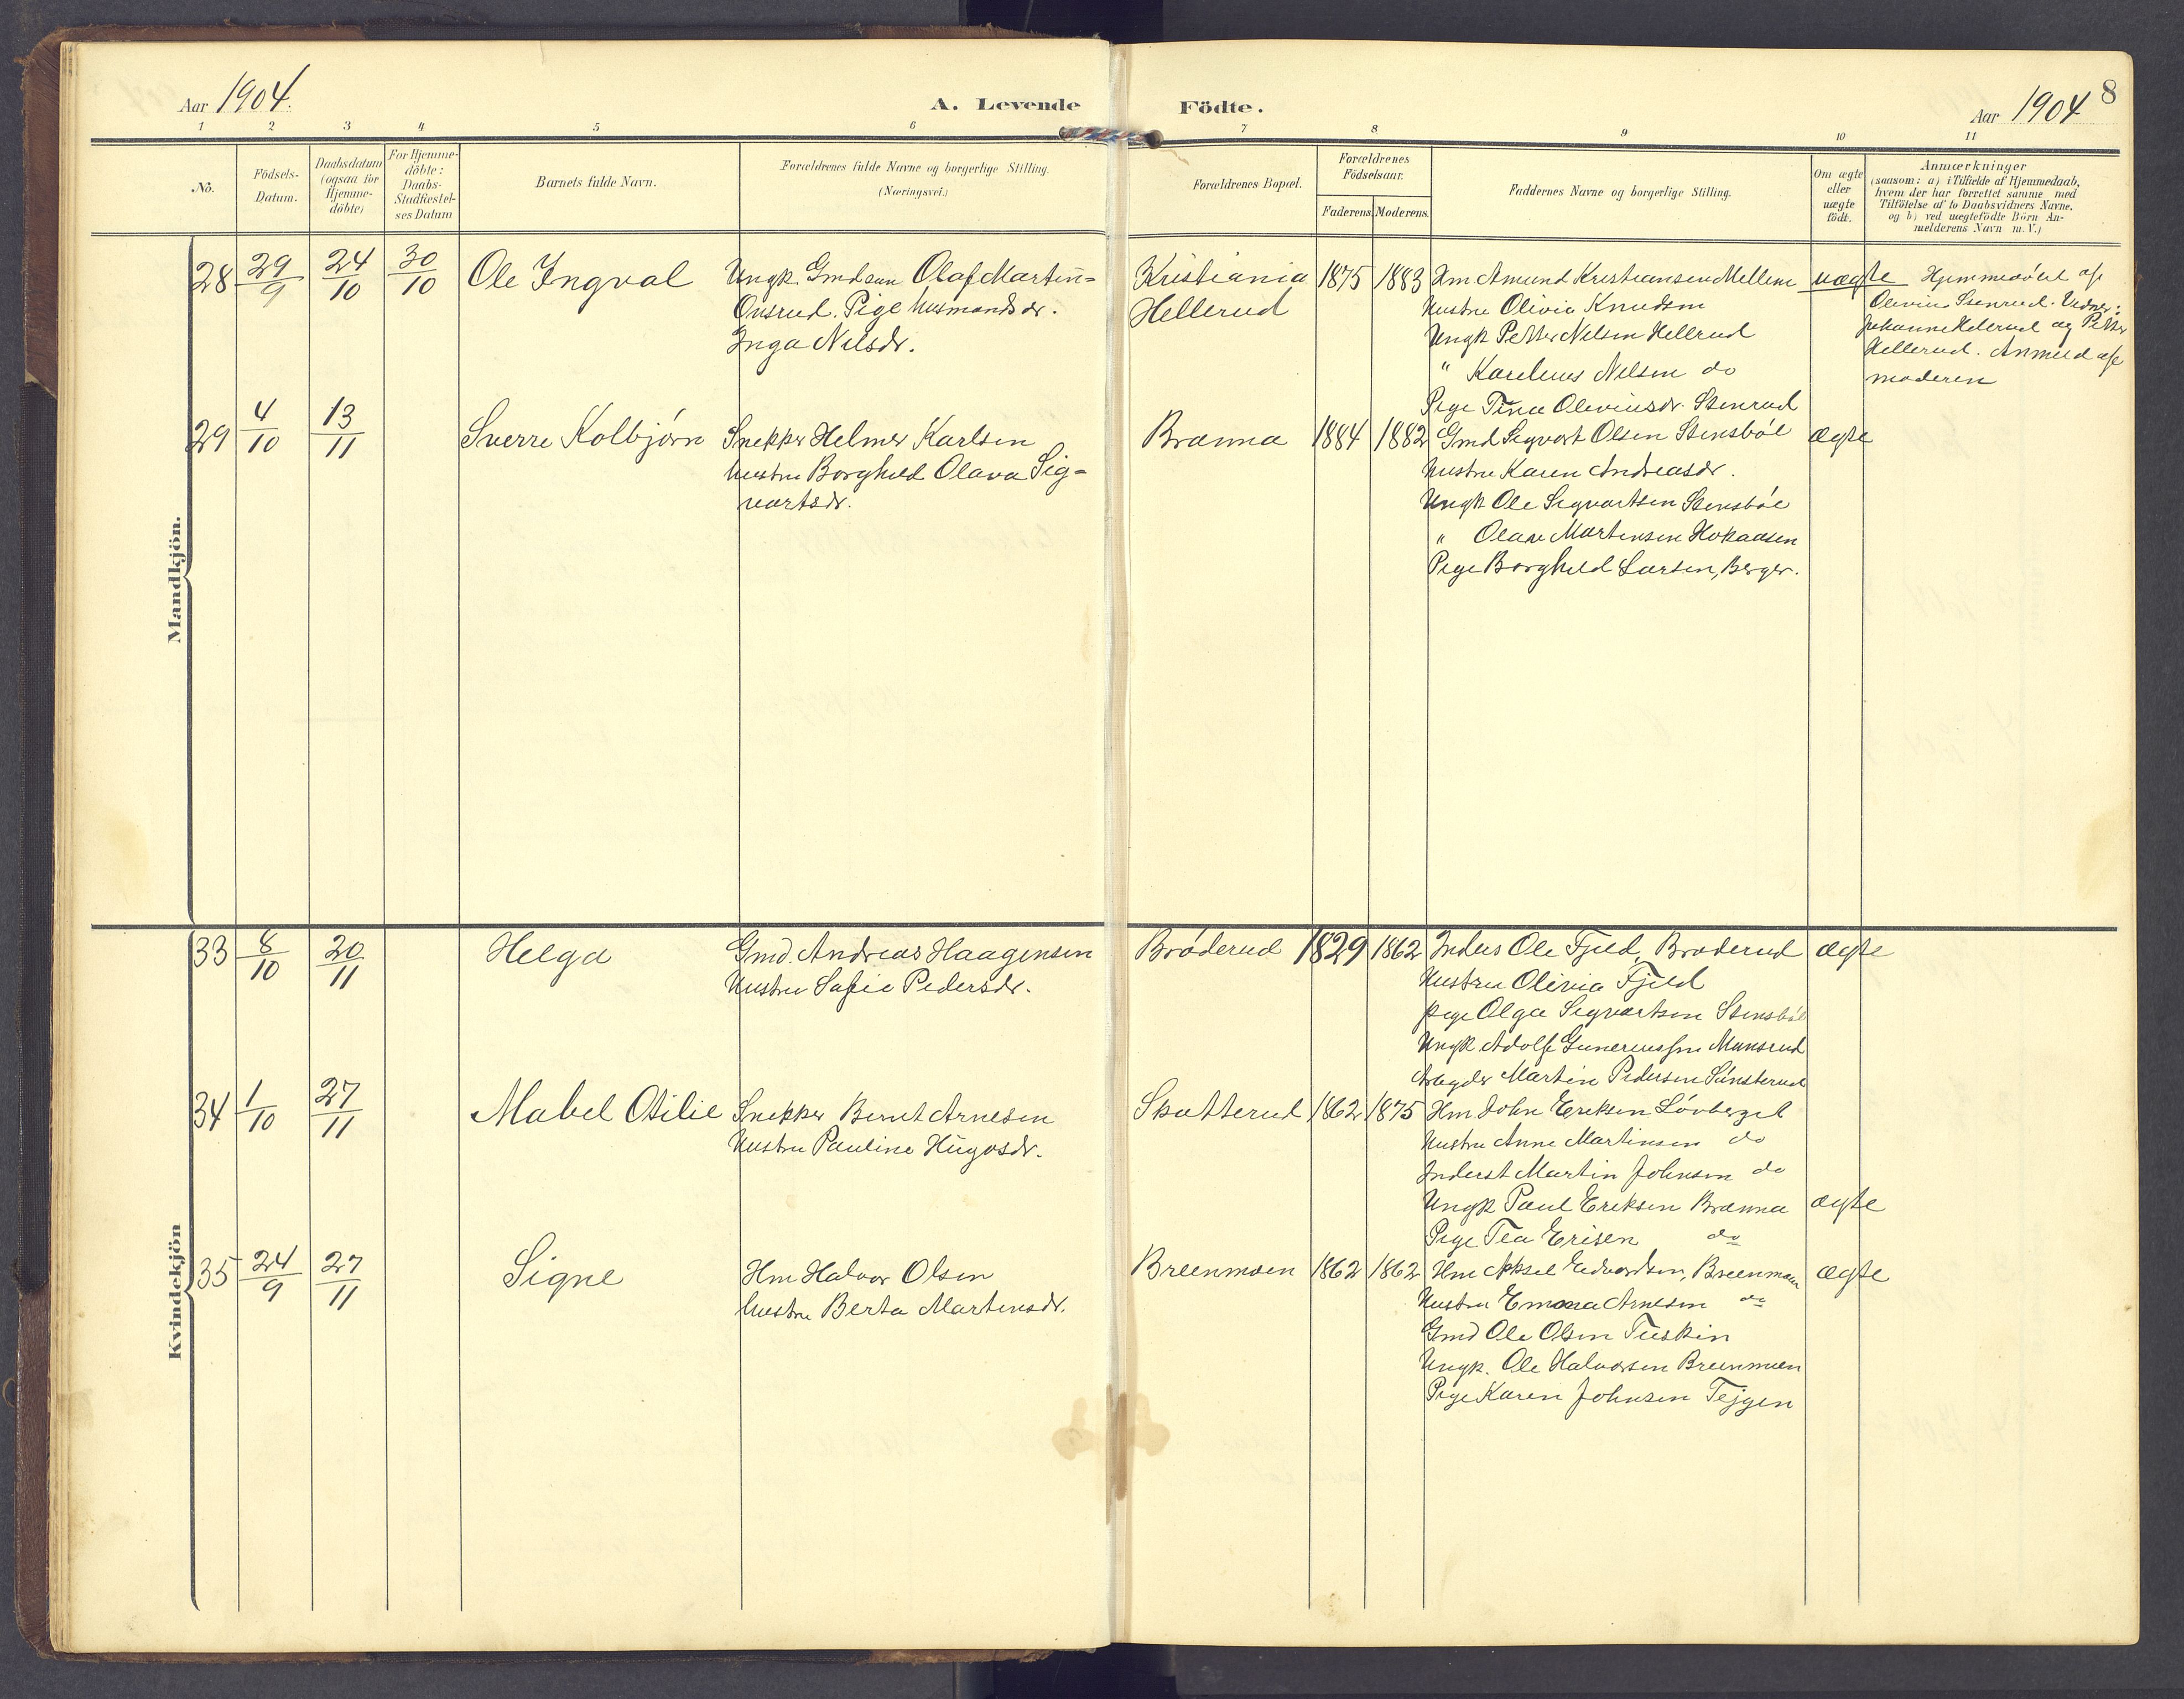 Aar 1904.
A. Levende Födte.
Aar 1904
8
1 2 3 4 5 6 7 8 9 10 11
No.
Födsels-
Datum.
Daabsdatum
(ogsaa for
Hjemme-
döbte)
For Hjemme-
döbte:
Daabs-
Stadfæstel-
ses Datum
Barnets fulde Navn.
Forældrenes fulde Navne og borgerlige Stilling.
(Næringsvei.)
Forældrenes Bopæl.
Forældrenes
Födselsaar.
Faderens. Moderens.
Faddernes Navne og borgerlige Stilling.
Om ægte
eller
uægte
födt.
Anmærkninger
(saasom: a) i Tilfælde af Hjemmedaab,
hvem der har forrettet samme med
Tilföielse af to Daabsvidners Navne,
og b) ved uægtefödte Börn An-
melderens Navn m.V.)
Mandkjön.
28 29/9 24/10 30/10 Ole Ingval
Ungk. Gmdsøn Olaf Martin=
Onsrud. Pige husmandsdr.
Inga Nilsdr.
Kristiania
Hellerud
1875 1883
Hm Amund Kristiansen Mellem
Hustru Olivia Knudsen
Ungk Petter Nilsen Hellrud
" Karelius Nilsen do
Pige Tina Oliviusdr. Stenrud
uægte
Hjemmedöbt af
Olivius Stenrud. Vidner:
Johanne Hellerud og Petter
Hellerud. Anmeld af
moderen
29 4/10 13/11 Sverre Kolbjörn
Snekker Helmer Karlsen
Hustru Borghild Olava Sig=
vartsdr.
Brænna 1884 1882
Gmd Sigvart Olsen Stensböl
Hustru Karen Andreasdr.
Ungk Ole Sigvartsen Stensböl
" Olav Martinsen Hokaasen
Pige Borghild Larsen, Berger.
ægte
Kvindekjön
33 8/10 20/11 Helga
Gmd. Andreas Haagensen
Hustru Sofie Pedersdr.
Bröderud 1829 1862
Inders Ole Fjeld, Bröderud
Hustru Olivia Fjeld
Pige Olga Sigvartsen Stensböl
Ungk Adolf Gunerius­sen Monsrud
Arbeyder Martin Pedersen Sönsterud
ægte
34 1/10 27/11 Mabel Otilie
Snekker Bernt Arnesen
Hustru Pauline Hugosdr.
Skatterud 1862 1875
Hm John Eriksen Lövberget
Hustru Anne Martinsen do
Inderst Martin Johnsen do
Ungk Paul Eriksen Brænna
Pige Tea Erisen do
ægte
35 24/9 27/11 Signe
Hm Halvor Olsen
Hustru Berta Martinsdr.
Breenmoen 1862 1862
Hm Aksel Edvardsen, Breenmoen
Hustru Emma Arnesen do
Gmd Ole Olsen Tuskin
Ungk. Ole Halvorsen Breenmoen
Pige Karen Johnsen Tejgen
ægte